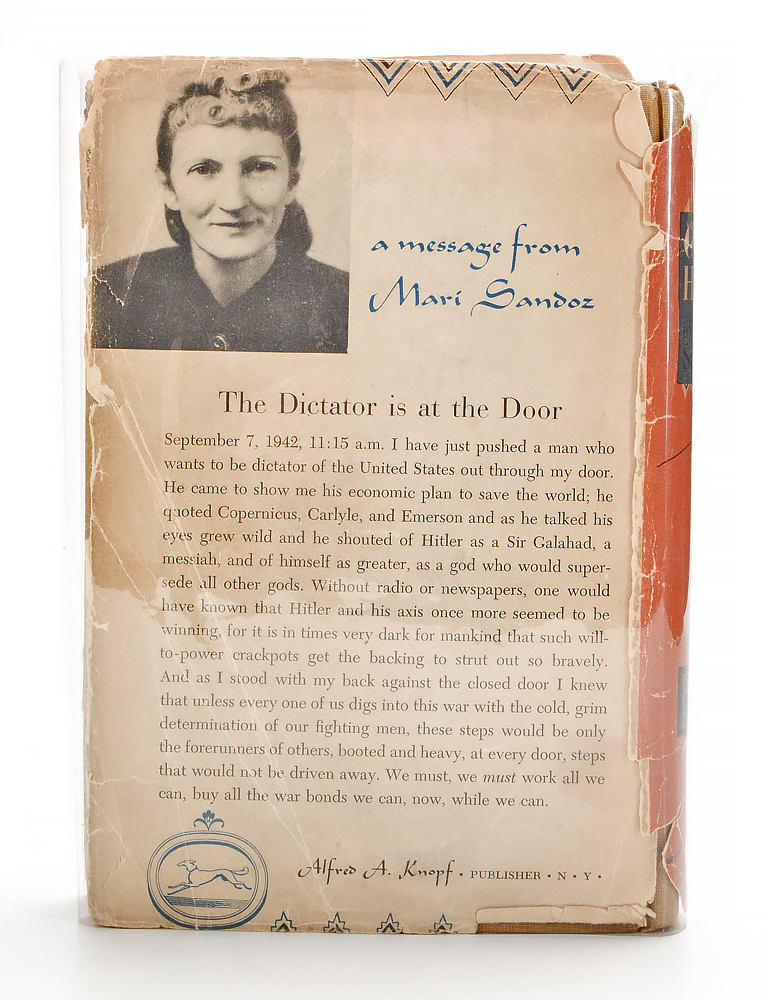 a message from
Mari Sandoz
The Dictator is at the Door
September 7, 1942, 11:15 a.m. I have just pushed a man who
wants to be dictator of the United States out through my door.
He came to show me his economic plan to save the world; he
quoted Copernicus, Carlyle, and Emerson and as he talked his
eyes grew wild and he shouted of Hitler as a Sir Galahad, a
messiah, and of himself as greater, as a god who would super-
sede all other gods. Without radio or newspapers, one would
have known that Hitler and his axis once more seemed to be
winning, for it is in times very dark for mankind that such will-
to-power crackpots get the backing to strut out so bravely.
And as I stood with my back against the closed door I knew
that unless every one of us digs into this war with the cold, grim
determination of our fighting men, these steps would be only
the forerunners of others, booted and heavy, at every door, steps
that would not be driven away. We must, we must work all we
can, buy all the war bonds we can, now, while we can.
Alfred A. Knopf · PUBLISHER · N · Y ·